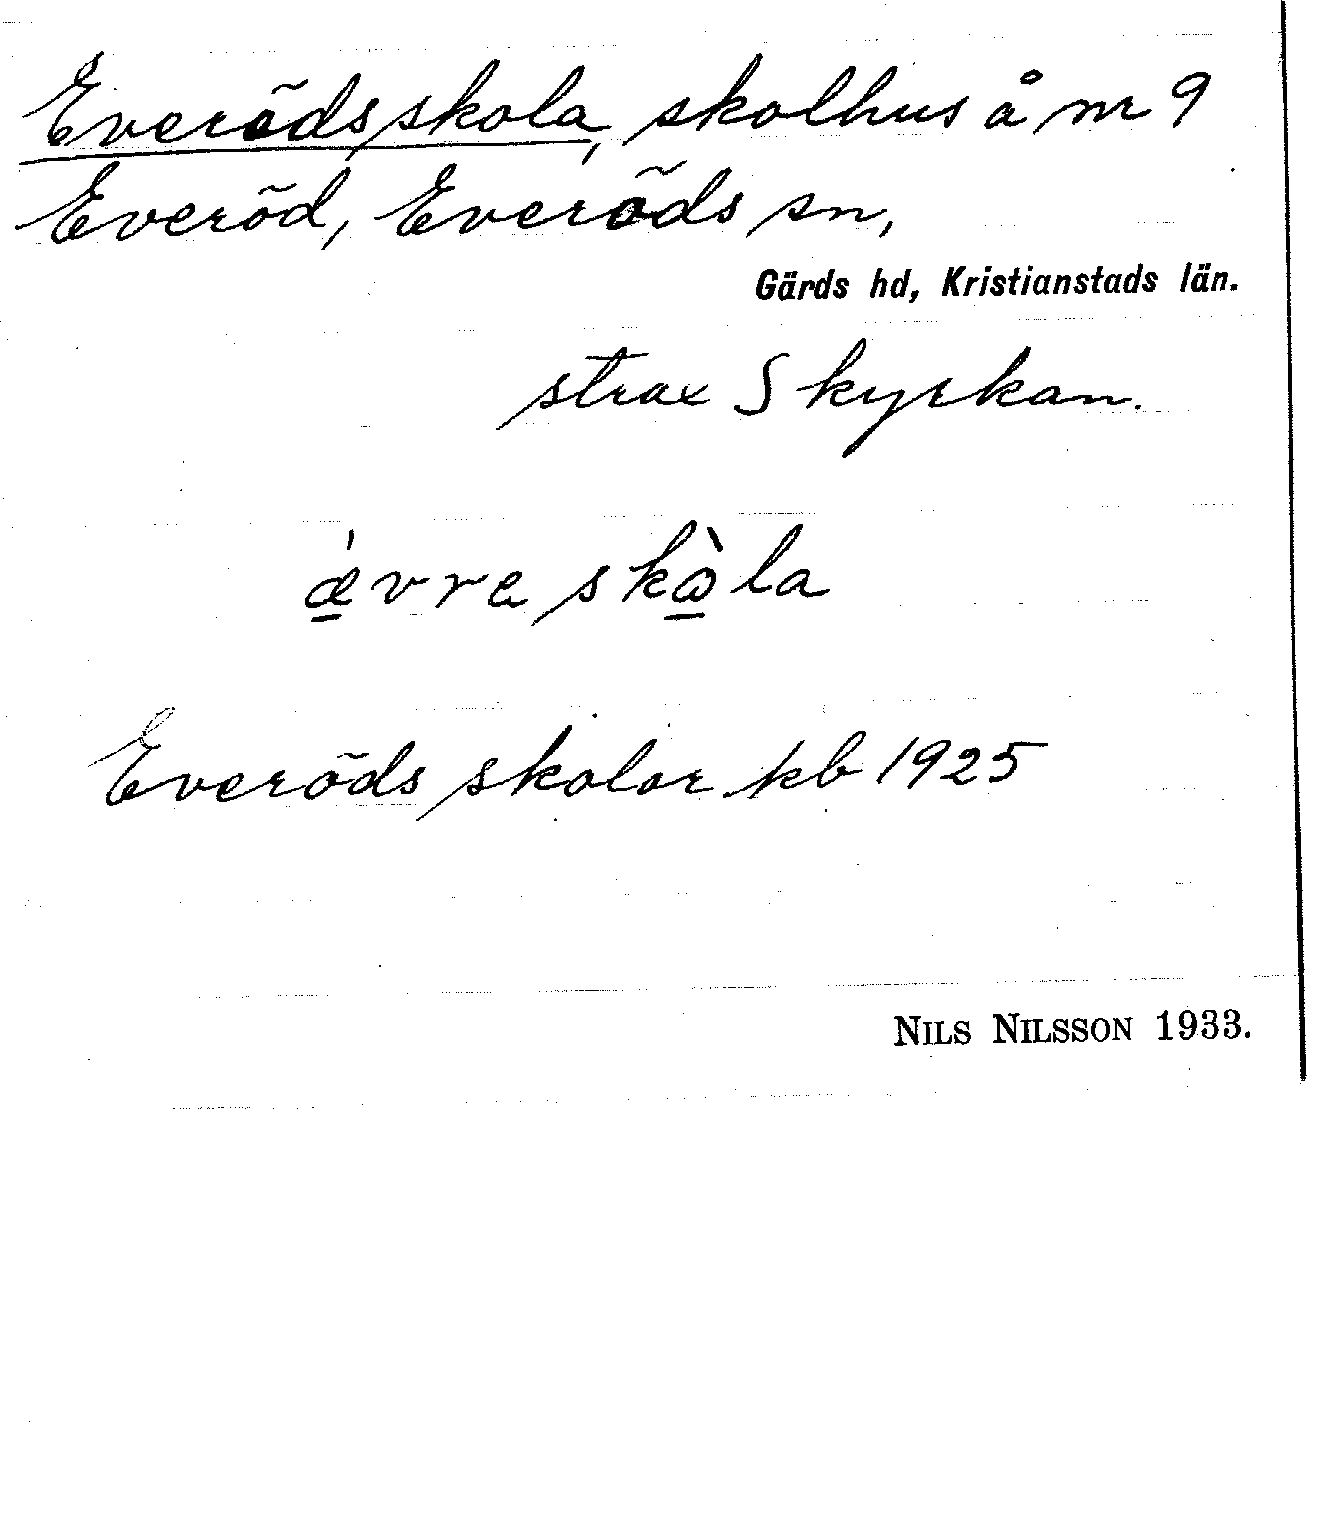 Everödsskola, skolhus å nr 9
Everöd, Everöds sn,
Gärds hd, Kristianstads län.
strax S kyrkan.
ǽvre skòla
Everöds skolor kb 1925
NILS NILSSON 1933.